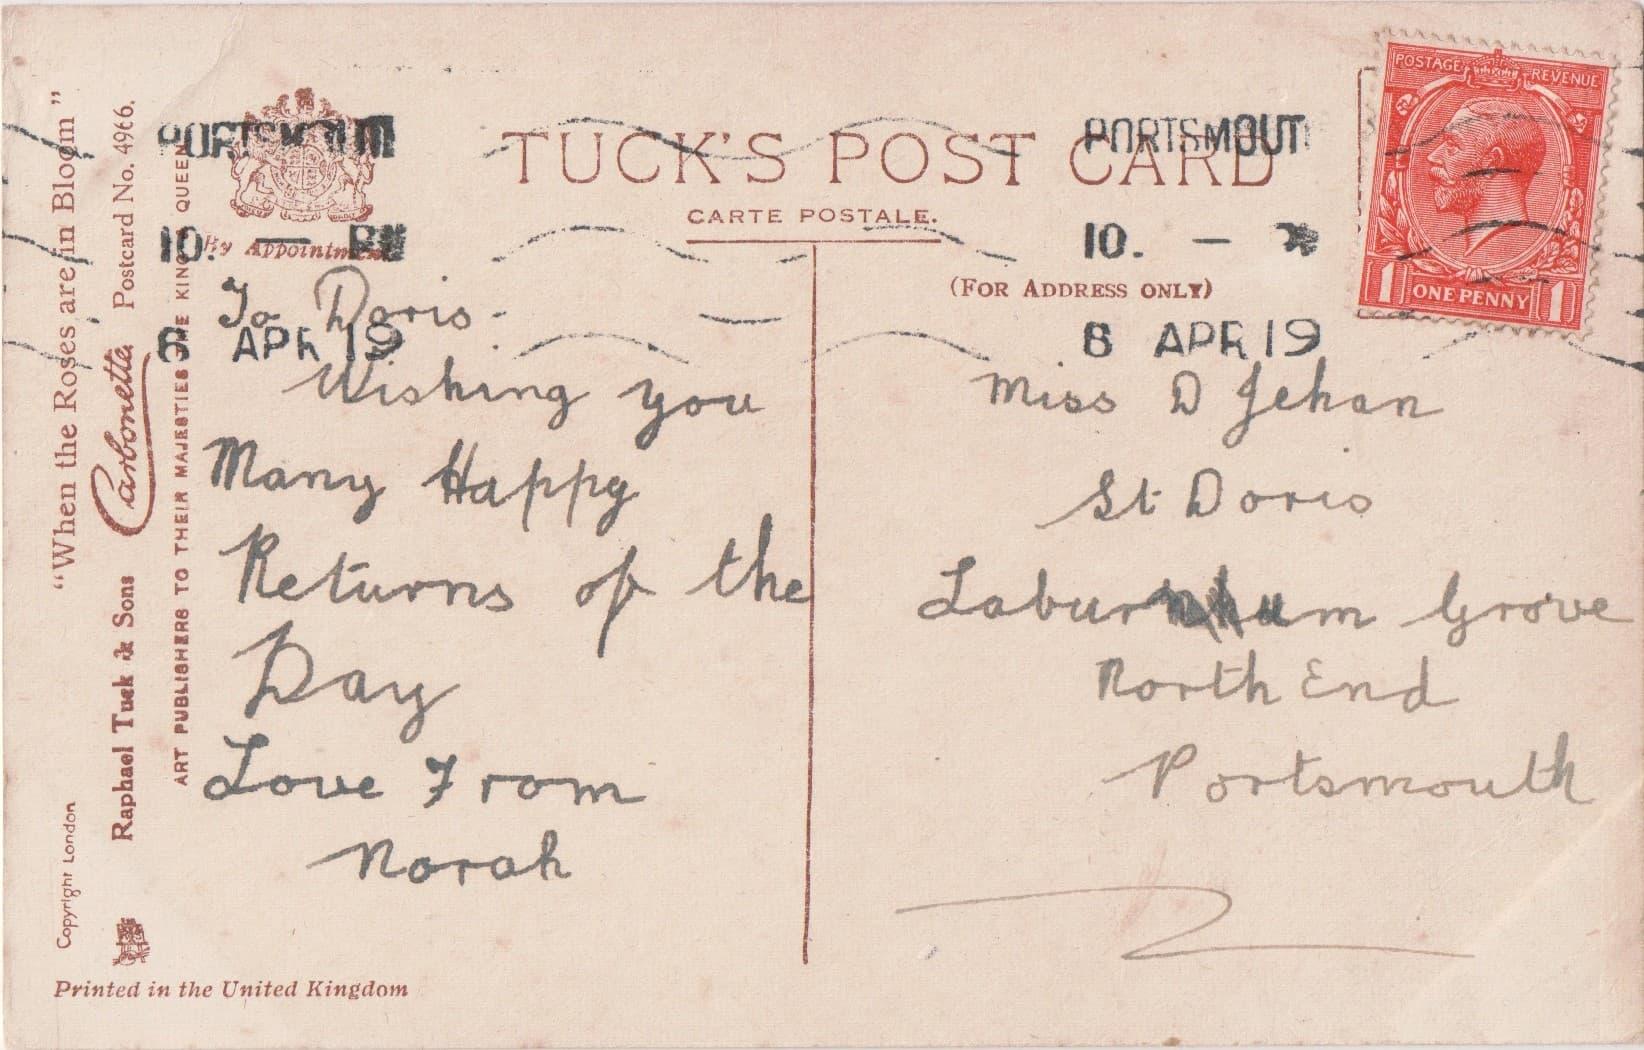 "When the Roses are in Bloom"
Carbonette Postcard No. 4966.
Raphael Tuck & Sons
ART PUBLISHERS TO THEIR MAJESTIES THE KING QUEEN
Copyright London
Printed in the United Kingdom
By Appointment
TUCK'S POST CARD
CARTE POSTALE.
(FOR ADDRESS ONLY)
POSTAGE REVENUE
1 ONE PENNY 1
PORTSMOUTH
10. –
6 APR 19
PORTSMOUT
10. –
6 APR 19
To Doris.
Wishing you
Many Happy
Returns of the
Day
Love From
Norah
Miss D Jehan
St Doris
Laburnhum Grove
North End
Portsmouth